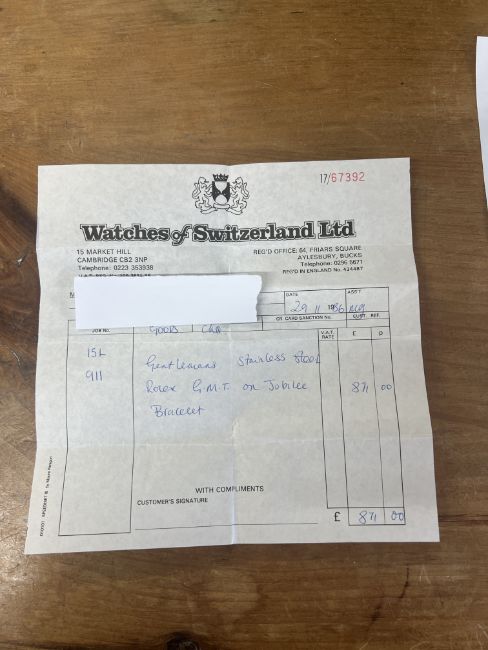 17/67392
Watches of Switzerland Ltd
15 MARKET HILL
CAMBRIDGE CB2 3NP
Telephone: 0223 353938
REG'D OFFICE: 64, FRIARS SQUARE
AYLESBURY, BUCKS
Telephone: 0296 5671
REG'D IN ENGLAND No. 424487
M
DATE
ASS'T
29 11 1986
CR. CARD SANCTION No.
CUST. REF.
JOB No.
GOODS
Chq
V.A.T. RATE
£
P
151
911
Gentlemans Stainless Steel
Rolex G.M.T. on Jubilee
871 00
Bracelet
WITH COMPLIMENTS
CUSTOMER'S SIGNATURE
£ 871 00